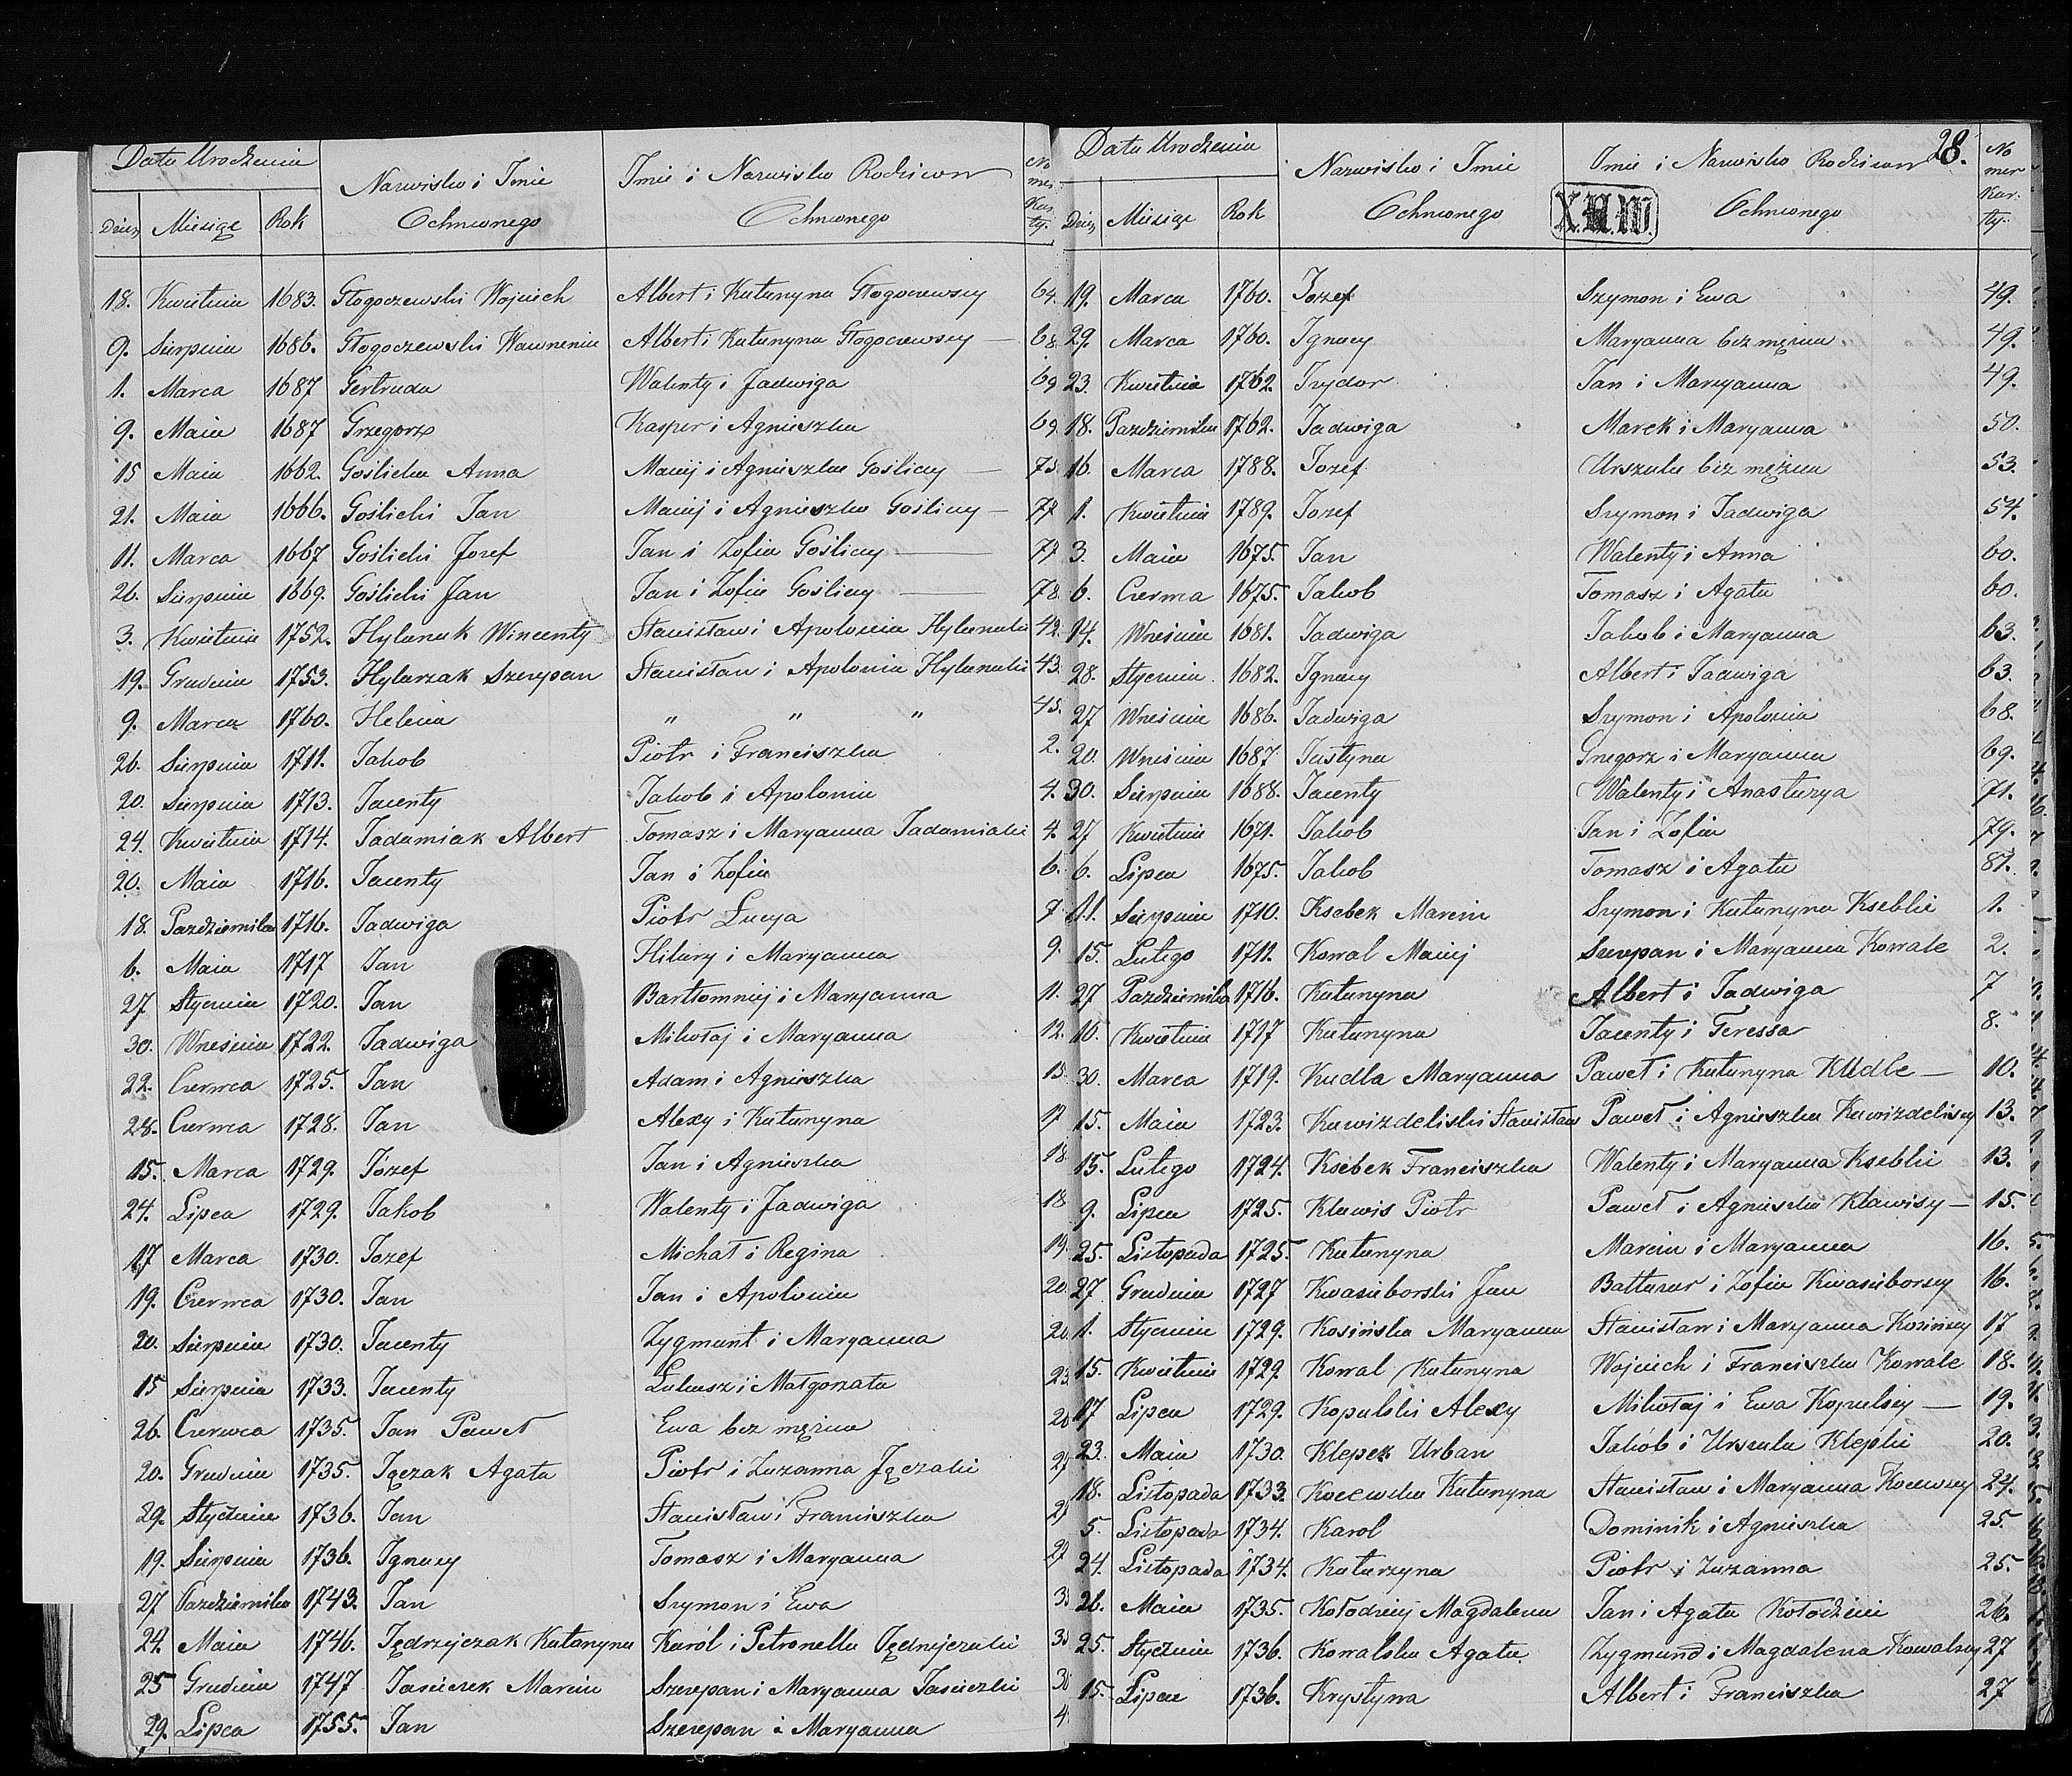 Data Urodzenia
Nazwisko i Imie Ochrzconego
Imie i Nazwisko Rodzicow Ochrzconego
No mer Kar ty.
Dzień Miesiąc Rok
18. Kwietnia 1683. Głogoczewski Wojciech Albert i Katarzyna Głogoczewscy 64.
9. Sierpnia 1686. Głogoczewski Wawrzeniec Albert i Katarzyna Głogoczewscy — 68.
1. Marca 1687 Gertruda Walenty i Jadwiga 69
9. Maia 1687 Grzegorz Kasper i Agnieszka 69.
15 Maia 1662. Goślicka Anna Maciej i Agnieszka Gośliccy — 75.
21. Maia 1666. Goślicki Jan Maciej i Agnieszka Gośliccy — 77
11. Marca 1667 Goślicki Jozef Jan i Zofia Gośliccy — 77
26. Sierpnia 1669. Goślicki Jan Jan i Zofia Gośliccy — 78.
3. Kwietnia 1752. Hylarzak Wincenty Stanisław i Apolonia Hylarzaki 42.
19. Grudnia 1753. Hylarzak Szczepan Stanisław i Apolonia Hylarzaki 43.
9. Marca 1760. Helena " " " 45.
26. Sierpnia 1711. Jakob Piotr i Franciszka 2.
20. Sierpnia 1713. Jacenty Jakob i Apolonia 4.
24. Kwietnia 1714. Jadamiak Albert Tomasz i Maryanna Jadamiaki 4.
20. Maia 1716. Jacenty Jan i Zofia 6.
18. Pazdziernika 1716. Jadwiga Piotr Lucya 7
6. Maia 1717 Jan Hilary i Maryanna 9.
27 Stycznia 1720. Jan Bartłomniej i Maryanna 11.
30. Wrzesnia 1722. Jadwiga Mikołaj i Maryanna 12.
22. Czerwca 1725. Jan Adam i Agnieszka 15.
28. Czerwca 1728. Jan Alexy i Katarzyna 17
15. Marca 1729. Józef Jan i Agnieszka 18
24. Lipca 1729. Jakob Walenty i Jadwiga 18
17 Marca 1730. Jozef Michał i Regina 19.
19. Czerwca 1730. Jan Jan i Apolonia 20.
20. Sierpnia 1730. Jacenty Zygmunt i Maryanna 20
15 Sierpnia 1733. Jacenty Łukasz i Małgorzata 23
26. Czerwca 1735. Jan Paweł Ewa bez mężna 26
20. Grudnia 1735. Jęczak Agata Piotr i Zuzanna Jęczaki 27
29. Stycznia 1736. Jan Stanisław i Franciszka 27
19. Sierpnia 1736. Ignacy Tomasz i Maryanna 27
27 Pazdziernika 1743. Jan Szymon i Ewa
24. Maia 1746. Jędrzejczak Katarzyna Karól i Petronella Jędrzejczaki
25 Grudnia 1747 Jasiczek Marcin Szczepan i Maryanna Jasiczki
29. Lipca 1755. Jan Szczepan i Maryanna
28.
Data Urodzenia
Nazwisko i Imie Ochrzconego
Imie i Nazwisko Rodzicow Ochrzconego
No mer Kar. ty.
Dzień Miesiąc Rok
19. Marca 1760. Jozef Szymon i Ewa 49.
29. Marca 1760. Ignacy Maryanna bez mężna 49.
23. Kwietnia 1762. Izydor Jan i Maryanna 49.
18. Pazdziernika 1762. Jadwiga Marek i Maryanna 50.
16. Marca 1788. Jozef Urszula bez mężna 53.
1. Kwietnia 1789. Jozef Szymon i Jadwiga 54.
3. Maia 1675. Jan Walenty i Anna 60.
6. Czerwca 1675. Jakob Tomasz i Agata 60.
14. Wrześnie 1681. Jadwiga Jakob i Maryanna 63.
28. Stycznia 1682. Ignacy Albert i Jadwiga 63.
27 Wrześnie 1686. Jadwiga Szymon i Apolonia 68.
20. Wrześnie 1687 Justyna Grzegorz i Maryanna 69.
30. Sierpnia 1688. Jacenty Walenty i Anastazya 71.
27 Kwietnia 1671. Jakob Jan i Zofia 79.
6. Lipca 1675. Jakob Tomasz i Agata 81.
11. Sierpnia 1710. Ksebek Marcin Szymon i Katarzyna Ksebki 1.
15. Lutego 1711. Kowal Maciej Szczepan i Maryanna Kowale 2.
27 Pazdziernika 1716. Katarzyna Albert i Jadwiga 7
10. Kwietnia 1717 Katarzyna Jacenty i Teressa 8.
30. Marca 1719. Kudla Maryanna Paweł i Katarzyna Kudle — 10.
15. Maia 1723. Kawizdeliski Stanisław Paweł i Agnieszka Kawizdeliscy 13.
15. Lutego 1724. Ksebek Franciszka Walenty i Maryanna Ksebki 13.
9. Lipca 1725. Klawis Piotr Paweł i Agnieszka Klawisy — 15.
25. Listopada 1725. Katarzyna Marcin i Maryanna 16.
27 Grudnia 1727 Kwasieborski Jan Baltazar i Zofia Kwasieborscy 16.
1. Stycznia 1729. Kosińska Maryanna Stanisław i Maryanna Kosińscy 17
15. Kwietnia 1729. Kowal Katarzyna Wojciech i Franciszka Kowale 18.
17 Lipca 1729. Kopulski Alexy Mikołaj i Ewa Kopulscy — 19.
23. Maia 1730. Klepek Urban Jakób i Urszula Klepki 20.
18. Listopada 1733. Koczewska Katarzyna Stanisław i Maryanna Koczewscy 24.
5. Listopada 1734. Karol Dominik i Agnieszka 25.
24. Listopada 1734. Katarzyna Piotr i Zuzanna 25.
26. Maia 1735. Kołodziej Magdalena Jan i Agata Kołodzieie 26.
25. Stycznia 1736. Kowalska Agata Zygmund i Magdalena Kowalscy 27
15. Lipca 1736. Krystyna Albert i Franciszka 27